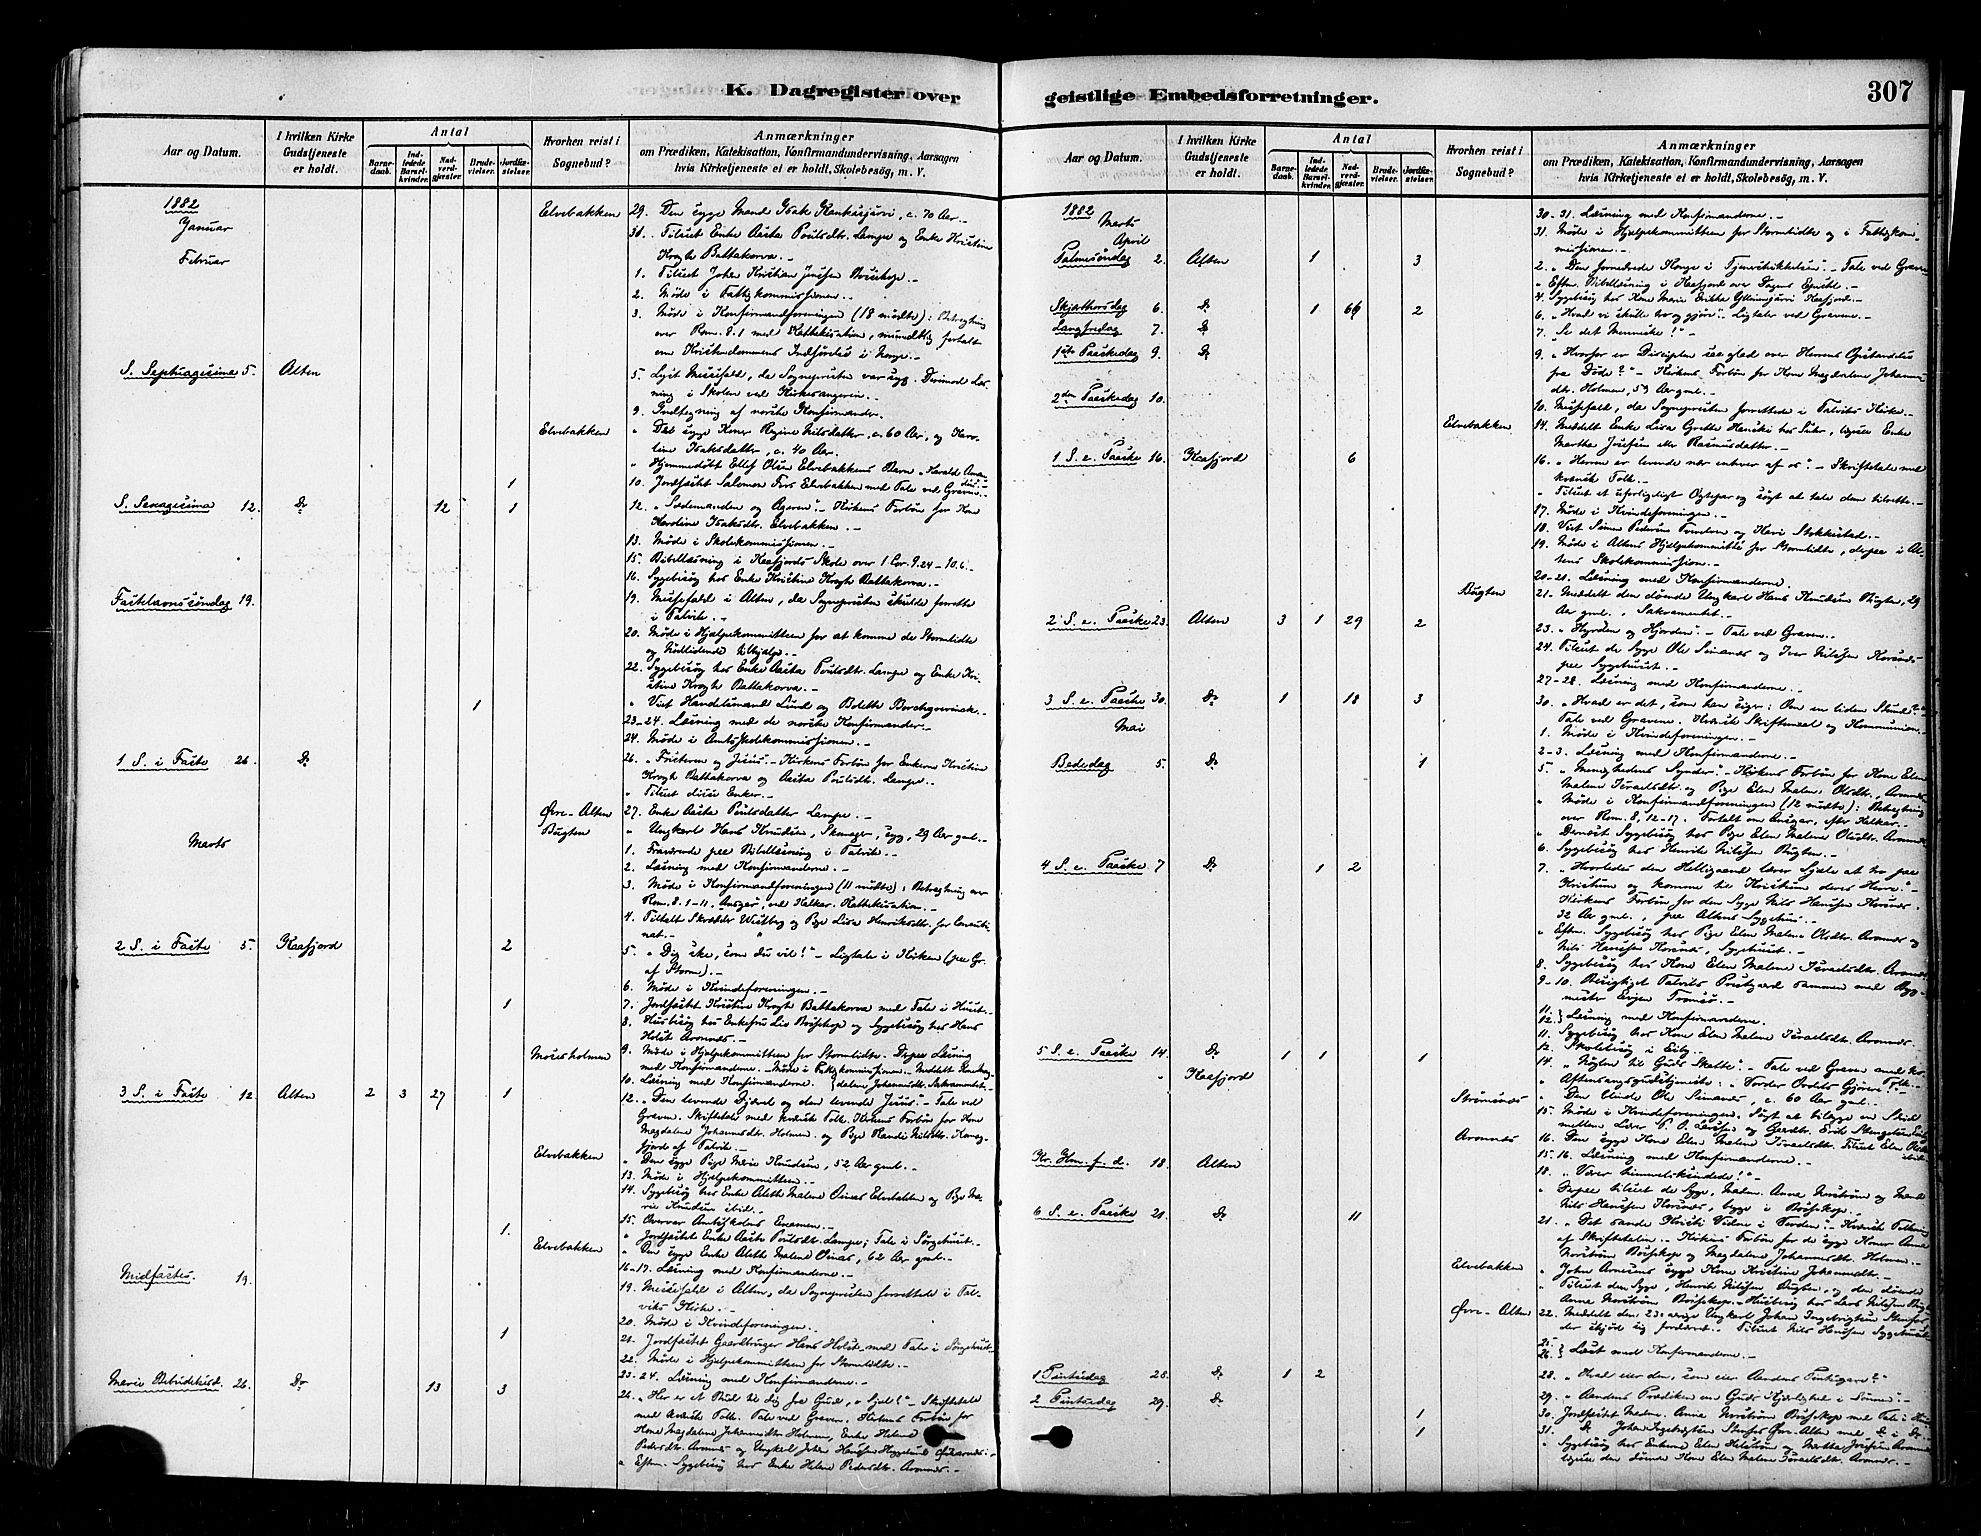 K. Dagregister over
Aar og Datum.
I hvilken Kirke Gudstjeneste er holdt.
Antal
Barnedaab.
Indledede Barselkvinder.
Nadverdgjæster.
Brudevielser.
Jordfæstelser.
Hvorhen reist i Sognebud?
Anmærkninger
om Prædiken, Katekisation, Konfirmandundervisning, Aarsagen
hvis Kirketjeneste ei er holdt, Skolebesøg, m. V.
1882
Januar
Elvebakken 29. Den syge Mand Isak c. 70 Aar.-
31. Tilset Enke Aasta Poulsdtr. Lampe og Enke Kristine
Krogh Battakorva.-
Februar
1. Tilset Johan Kristian Jensen Bossekop.-
2. Møde i Fattigkommissionen.-
3. Møde i Konfirmandforeningen (18 mødte): Betragtning
over Rom. 8.1 med Kattekisation, mundtlig fortalt
om Kristendommens Indførelse i Norge.-
S. Septuagesima 5. Alten
5. Lyst Messefald, da Sognepresten var syg. Derimod Læsning
i Skolen ved Kirkesangeren.-
9. Indtegning af norske Konfirmander.
Elvebakken " Det syge Koner Regine Nilsdatter, c. 60 Aar, og Karoline
Isaksdatter, c. 40 Aar.
" Hjemmedøbt Ellef Olsen Elvebakkens Barn "Harald
1 10. Jordfæstet Salomon Fors Elvebakken med Tale ved Graven.-
S. Sexagesima 12. Do 12 1
12. "Sædemanden og Ageren".- Kirkens Forbøn for Kone
Karoline Isaksdtr. Elvebakken.-
13. Møde i Skolekommissionen.-
15. Bibellæsning i Kaafjords Skole over 1 Cor. 9.24 - 10.6.-
16. Sygebesøg hos Enke Kristine Krogh Battakorva.-
Fastelavnssøndag 19.
19. Messefald i Alten, da Sognepresten skulde forrette
i Talvik.-
20. Møde i Hjælpekommitteen for at komme de Stormlidte
og Nødlidende tilhjælp.-
22. Sygebesøg hos Enke Aasta Poulsdtr. Lampe og Enke Kristine
Krogh Battakorva.-
1 " Viet Handelsmand Lund og Bolette Borchgrevinck.-
23-24. Læsning med de norske Konfirmander.-
24. Møde i Amtsskolekommissionen.-
1 S. i Faste 26. Do
26. "Fristeren og Jesus".- Kirkens Forbøn for Enkerne Kristine
Krogh Battakorva og Aasta Poulsdtr. Lampe.-
" Tilset disse Enker.-
Øvre-Alten 27. Enke Aasta Poulsdatter Lampe.-
Bugten " Ungkarl Hans Knudsen, syg, 29 Aar gml.-
Marts
1. Fraværende paa Bibellæsning i Talvik.-
2. Læsning med Konfirmanderne.-
3. Møde i Konfirmandforeningen (11 mødte): Betragtning over
Rom. 8. 1-11. Ansgar, ved Kalkar. Kattekisation.-
4. Tiltalt Skrædder Westberg og Pige Lisa Henriksdtr. for Concubinat.-
2 S. i Faste 5. Kaafjord 2
5. "Dig ske, som du vil!"- Ligtale i Kirken (paa Gr.
af Storm).-
6. Møde i Kvindeforeningen.-
1 7. Jordfæstet Kristine Krogh Battakorva med Tale i Huset.-
8. Husbesøg hos Enkefru Bossekop og Sygebesøg hos Hans
Holst Aronnæs.-
Mosesholmen 9. Møde i Hjælpekommitteen for Stormlidte. Derpaa Læsning
med Konfirmanderne.- Møde i Fattigkommissionen. Meddelt
10. Læsning med Konfirmanderne. Magdalene Johannesdtr. Sakramentet.-
3 S. i Faste 12. Alten 2 3 27 1
12. "Den levende Djævel og den levende Jesus".- Tale ved
Graven. Skriftetale med kvænsk Tolk. Kirkens Forbøn for Kone
Magdalene Johannesdtr. Holmen. og Pige Randi Nilsdtr.
af Talvik.-
Elvebakken " Den syge Pige Marie Knudsen, 52 Aar gml.-
13. Møde i Hjælpekommitteen.-
14. Sygebesøg hos Enke Aleth Malene Oinas Elvebakken og Pige Marie
Knudsen ibid.-
15. Overvar Amtsskolens Examen.-
1. " Jordfæstet Enke Aasta Poulsdtr. Lampe; Tale i Sørgehuset.-
Elvebakken " Den syge Enke Aleth Malene Oinas, 62 Aar gml.-
16-17. Læsning med Konfirmanderne.-
Midfaste. 19.
19. Messefald i Alten, da Sognepresten forrettede i Talviks
Kirke.-
20. Møde i Kvindeforeningen.-
1 21. Jordfæstet Gaardbruger Hans Holst med Tale i Sørgehuset.-
22. Møde i Hjælpekommitteen for Stormlidte.-
23-24. Læsning med Konfirmanderne.-
Marie Bebudelsesd. 26. Do 13 3
26. "Her er et Bud til dig fra Gud, o Sjel!"- Skriftetale
med kvænsk Tolk. Tale ved Graven. Kirkens Forbøn for
Kone Magdalene Johannesdtr. Holmen, Enke Helene
Pedersdtr. Aronnæs og Ungkarl Johan Hansen
" Eftm. Sygebesøg hos Enke Helene Pedersdtr. Aronnæs.-
geistlige Embedsforretninger.
307
Aar og Datum.
I hvilken Kirke Gudstjeneste er holdt.
Antal
Barnedaab.
Indledede Barselkvinder.
Nadverdgjæster.
Brudevielser.
Jordfæstelser.
Hvorhen reist i Sognebud?
Anmærkninger
om Prædiken, Katekisation, Konfirmandundervisning, Aarsagen
hvis Kirketjeneste ei er holdt, Skolebesøg, m. V.
1882
Marts
30-31. Læsning med Konfirmanderne.-
31. Møde i Hjælpekommitteen for Stormlidte og i Fattigkommissionen.-
April
Palmesøndag 2. Alten 1 3
2. "Den fornedrede Konge i Tjenerskikkelsen".- Tale ved Graven.
" Eftm. Bibellæsning i Kaafjord over Dagens Epistel.-
4. Sygebesøg hos Kone Marie Erikka Kaafjord.-
Skjærthorsdag 6. Do 1 66 2
6. "Hvad vi skulle tro og gjøre".- Ligtaler ved Graven.-
Langfredag 7. Do
7. "Se det Menneske!"-
1ste Paaskedag 9. Do
9. "Hvorfor er Disciplen saa glad over Herrens Opstandelse
fra Døde?"- Kirkens Forbøn for Kone Magdalene Johannesdtr.
Holmen, 59 Aar gml.-
2den Paaskedag 10.
10. Messefald, da Sognepresten forrettede i Talviks Kirke.-
Elvebakken 14. Meddelt Enke Lisa Grethe Hanski hos Suhr, ligesaa Enke
Marthe Josefsen eller Rasmusdatter.-
1 S. e. Paaske 16. Kaafjord 6
16. "Herren er levende nær enhver af os".- Skriftetale med
kvænsk Tolk.-
" Tilset et uforligeligt Ægtepar og søgt at tale dem tilrette.-
17. Møde i Kvindeforeningen.-
18. Viet Simon Pedersen og Kari Stokkstad.-
19. Møde i Altens Hjælpekommitte for Stormlidte, derpaa i Altens
Skolekommission.-
20-21. Læsning med Konfirmanderne.-
Bugten 21. Meddelt den døende Ungkarl Hans Knudsen Bugten, 29
Aar gml., Sakramentet.-
2 S. e. Paaske 23. Alten 3 1 29 2
23. "Hyrden og Hjorden".- Tale ved Graven.-
24. Tilset de Syge Ole Simanæs og Iver Nilsen Korsnæs
paa Sygehuset.-
27-28. Læsning med Konfirmanderne.-
3 S. e. Paaske 30. Do 1 18 3
30. "Hvad er det, som han siger: Om en liden Stund?"-
Tale ved Gravene. Kvænsk Skriftemaal og Kommunion.-
Mai
1. Møde i Kvindeforeningen.-
2-3. Læsning med Konfirmanderne.-
Bededag 5. Do 1
5. "Menighedens Synder".- Kirkens Forbøn for Kone Elen
Malene Israelsdtr. og Pige Elen Malene Olsdtr., Aronnæs
" Møde i Konfirmandforeningen (12 mødte): Betragtning
over Rom. 8, 12-17. Fortalt om Ansgar, efter Kalkar.-
" Dernæst Sygebesøg hos Pige Elen Malene Olsdtr. Aronnæs.
6. Sygebesøg hos Henrik Nilsen Bugten.-
4 S. e. Paaske 7 Do 1 2
7. "Hvorledes den Helligaand lærer Sjele at tro paa
Kristum og komme til Kristum deres Herre".-
Kirkens Forbøn for den syge Nils Hansen Korsnæs
32 Aar gml., paa Altens Sygehus.-
" Eftm. Sygebesøg hos Pige Elen Malene Olsdtr. Aronnæs og
Nils Hansen Korsnæs, Sygehuset.-
8. Sygebesøg hos Kone Elen Malene Israelsdtr. Aronnæs
9-10. Besigtiget Talviks Prestgaard sammen med Bygmester
Evjen Tromsø.-
11. 12. } Læsning med Konfirmanderne.
11. Sygebesøg hos Kone Elen Malene Israelsdtr. Aronnæs.
12. Skolebesøg i Eiby.-
5 S. e. Paaske 14. Do 1 1 1
14. "Nøglen til Guds Skatte".- Tale ved Graven med kv. Tolk.-
" Kaafjord
" Aftensangsgudstjeneste: "Vorder Ordets Gjørere!"-
Strømsnæs " Den blinde Ole Simanæs, c. 60 Aar gml.-
15. Møde i Kvindeforeningen. Søgt at bilægge en Strid
mellem Lærer P. O. Larsen og Gaardbr. Erik
Aronnæs 16. Den syge Kone Elen Malene Israelsdtr. Tilset Elen
15-16. Læsning med Konfirmanderne.-
Kr. Hm. f. d. 18. Alten
18. "Værer himmelskindede!"-
" Derpaa tilset de Syge, Madm. Anne Norstrøm og Mand
Nils Hansen Korsnæs, begge i Bossekop.-
6 S. e. Paaske 21. Do 11
21. "Det sande Kristi Vidne i Verden".- Kvænsk Tolkning
af Skriftetalen.- Kirkens Forbøn for de syge Koner Anna
Norstrøm Bossekop og Magdalene Johannesdtr. Holmen.-
Elvebakken " John Arnesens syge Kone Kristine Johannesdtr.-
" Tilset den Syge, Henrik Nilsen Bugten, og den døende
Anne Norstrøm Bossekop.- Husbesøg hos Lars Nilsen
Øvre-Alten 22. Meddelt den 23-aarige Ungkarl Johan Ingebrigtsen
der skjød sig fordærvet.- Tilset Nils Hansen Sygehuset.
25. 26. } Læst med Konfirmanderne.-
1 Pintsedag 28. Do 1 2
28. "Hvad eier den, som eier Aandens Pintsegave?"
2 Pintsedag 29. Do
29. "Aandens Prædiken om Guds Kjærlighed i Sønnen".-
1 30. Jordfæstet Madm. Anne Norstrøm Bossekop med Tale i
1 31. Do Johan Ingebrigtsen Øvre-Alten med Do i Do.-
" Sygebesøg hos Enkerne Elen og Marthe Josefsen Aronnæs
ligesaa den døende Kone Elen Malene Israelsdtr. Aronnæs.-